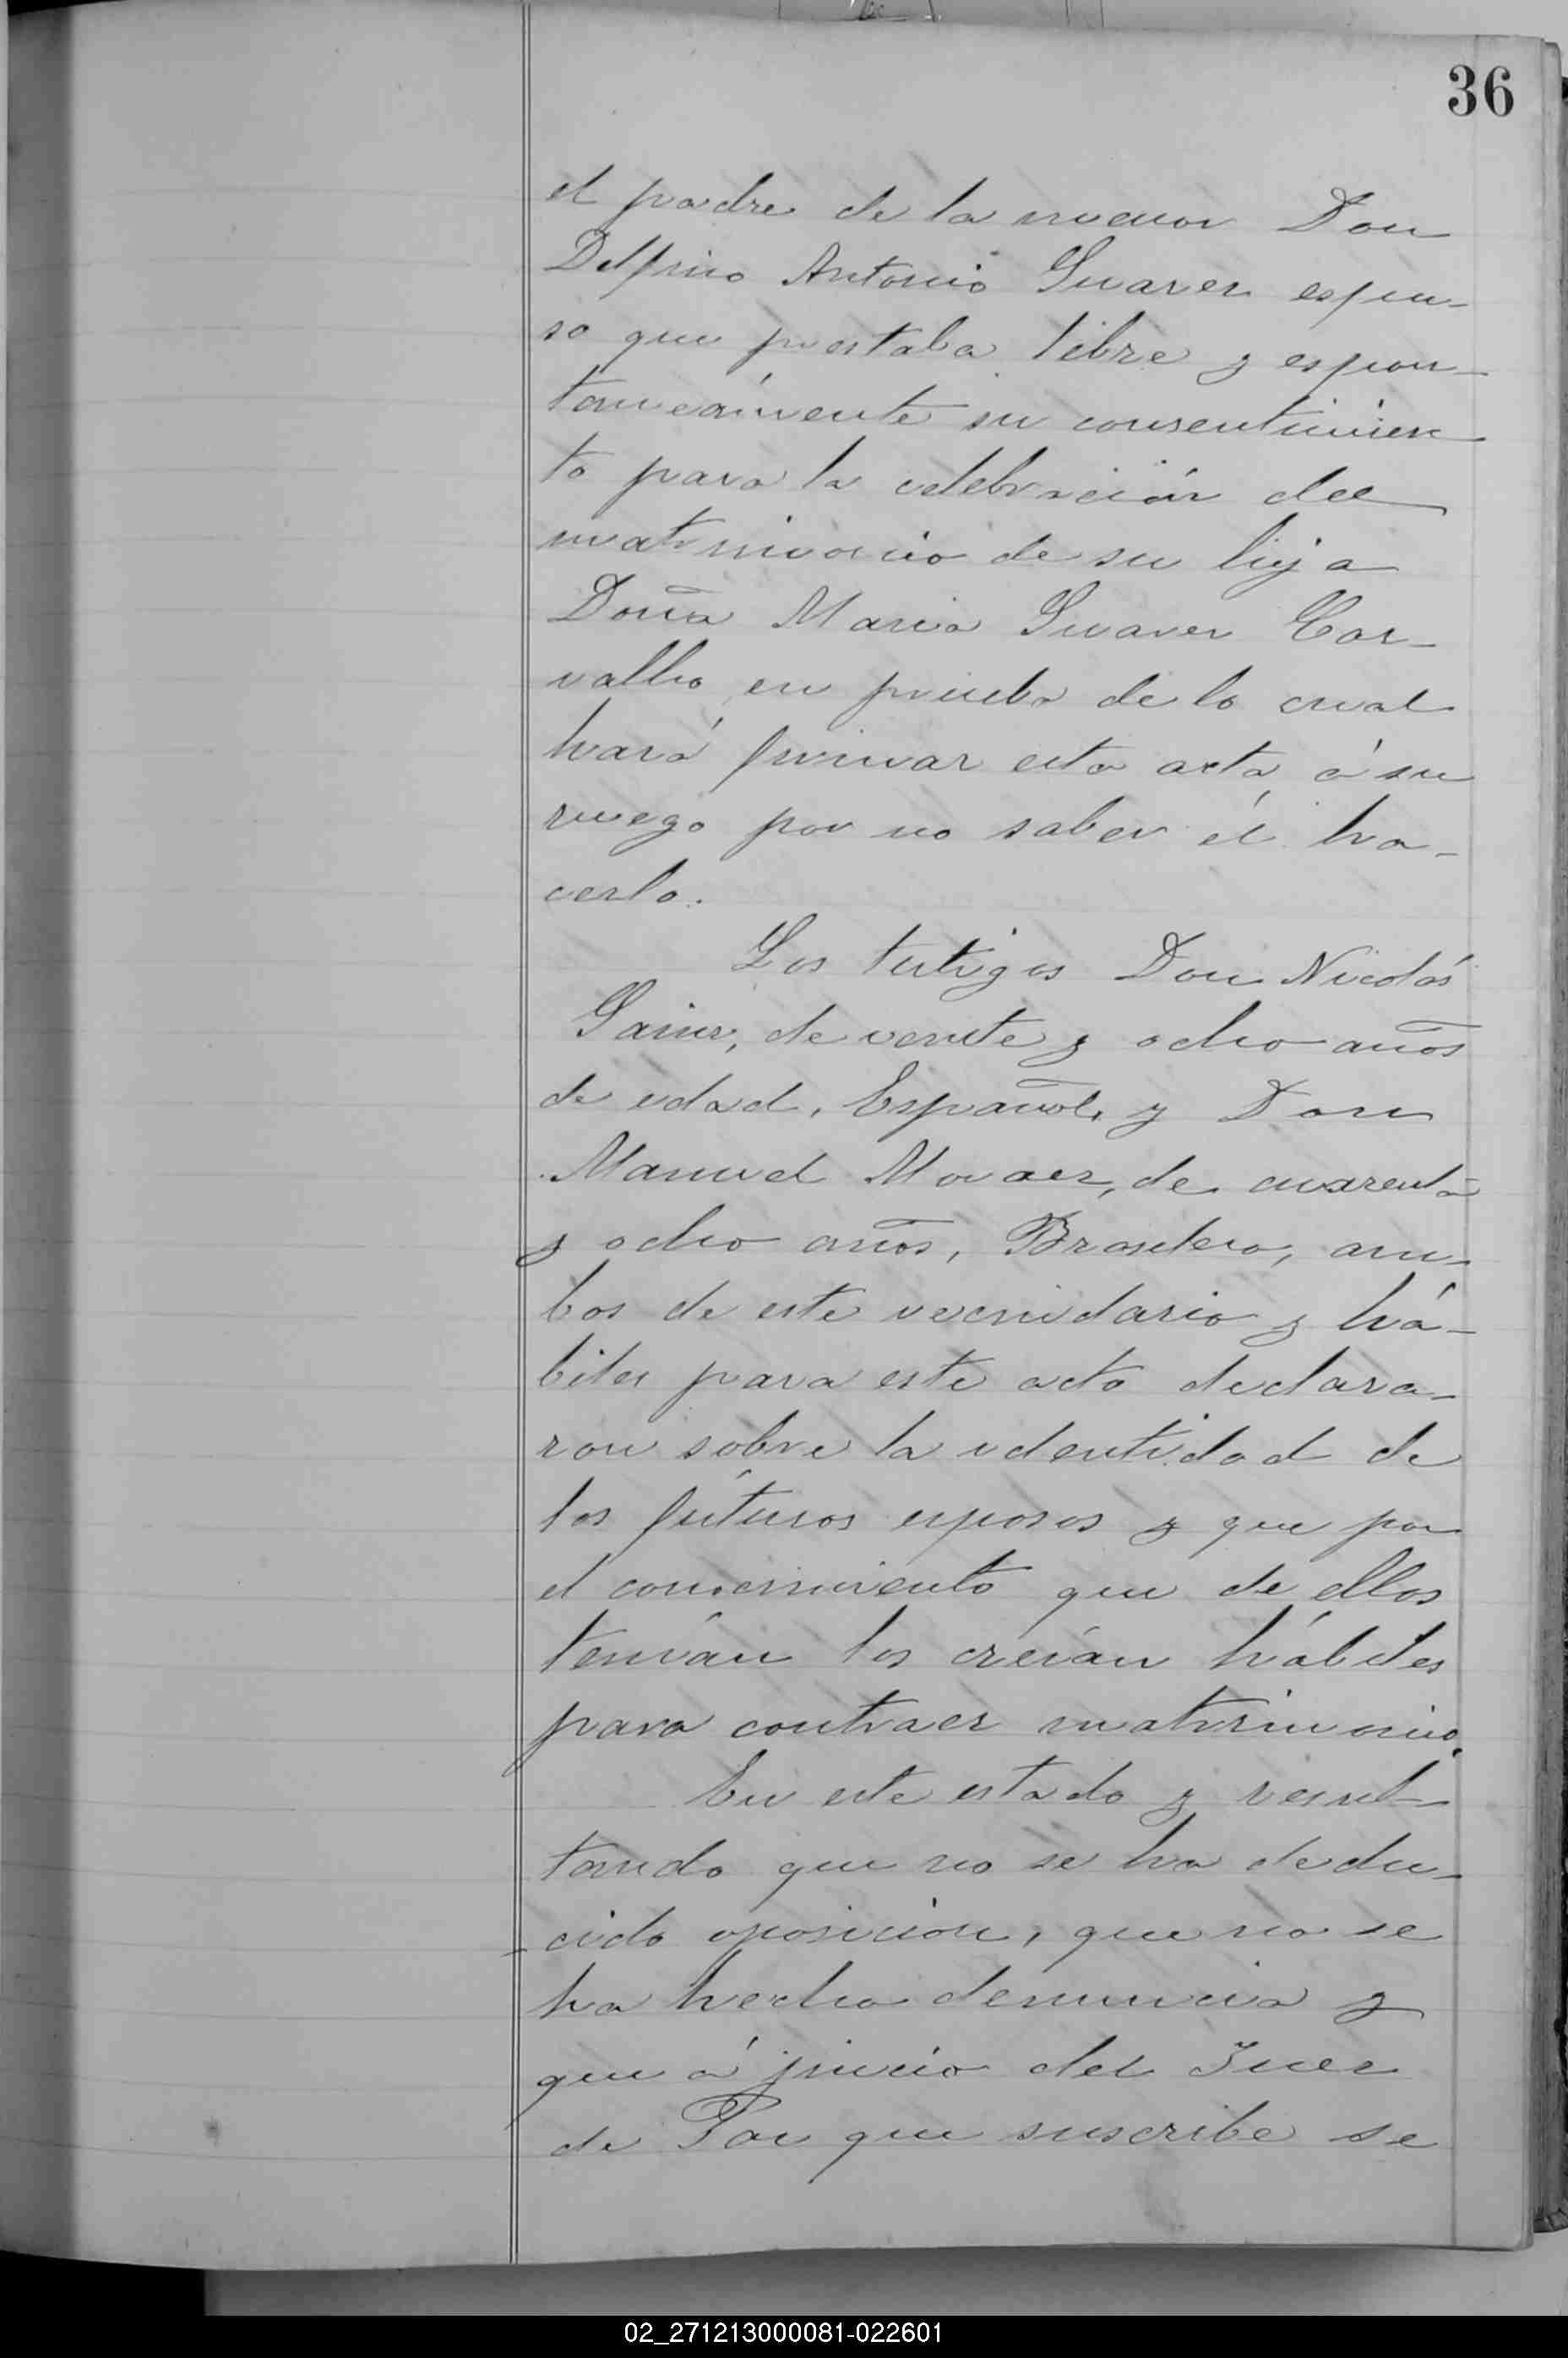 36
el padre de la menor Don
Delfino Antonio Suarez espu-
so que prestaba libre y espon-
taneamente su consentimien-
to para la celebración del
matrimonio de su hija
Doña Maria Suarez Car-
vallo, en prueba de lo cual
hará firmar esta acta, á su
ruego por no saber él ha-
cerlo.
Los testigos Don Nicolás
de veinte y ocho años
de edad, Español, y Don
Manuel de cuarenta
y ocho años, Brasilero, am-
bos de este vecindario y há-
biles para este acto declara-
ron sobre la identidad de
los futuros esposos y que por
el conocimiento que de ellos
tenían los creían hábiles
para contraer matrimonio.
En este estado y resul-
tando que no se ha dedu-
cido oposición, que no se
ha hecho denuncia y
que á juicio del Juez
de Paz que suscribe se
02_271213000081-022601